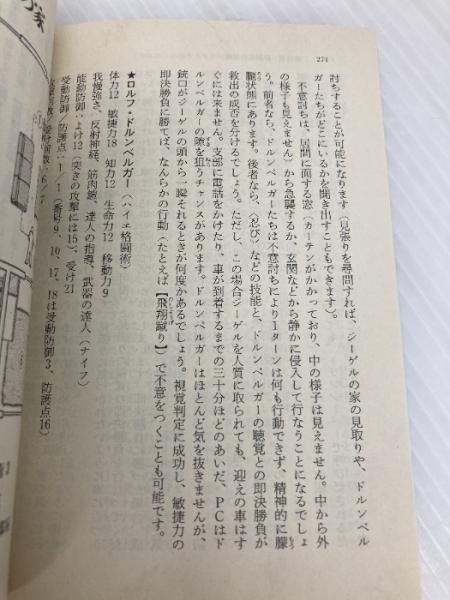 274
討ちすることが可能になります（見張りを尋問すれば、ジーゲルの家の見取りや、ドルンベル
ガーたちがどこにいるかを聞き出すこともできます）。
不意討ちは、居間に面する窓（カーテンがかかっており、中の様子は見えません。中から外
の様子も見えません）から急襲するか、玄関などから静かに侵入して行なうことになるでしょ
う。前者なら、ドルンベルガーたちは不意討ちにより1ターンは何も行動できず、精神的に朦
朧状態にあります。後者なら、〈忍び〉などの技能と、ドルンベルガーの聴覚との即決勝負が
救出の成否を分けるでしょう。ただし、この場合ジーゲルを人質に取られても、迎えの車はす
ぐには来ません。支部に電話をかけたり、車が到着するまでの三十分ほどのあいだ、PCはド
ルンベルガーの隙を狙うチャンスがあります。ドルンベルガーはほとんど気を抜きませんが、
銃口がジーゲルの頭から一瞬それるときが何度かあるでしょう。視覚判定に成功し、敏捷力の
即決勝負に勝てば、なんらかの行動（たとえば【飛翔蹴り】で不意をつくことも可能です。
★ロルフ・ドルンベルガー（ハイェ格闘術）
体力12 敏捷力18 知力12 生命力12 移動力9
我慢強さ、反射神経、筋肉鎧、達人の指導、武器の達人（ナイフ）
能動防御：よけ12（突きの攻撃には15）、受け21
受動防御／防護点：1／1（番号9、10、17、18は受動防御3、防護点16）